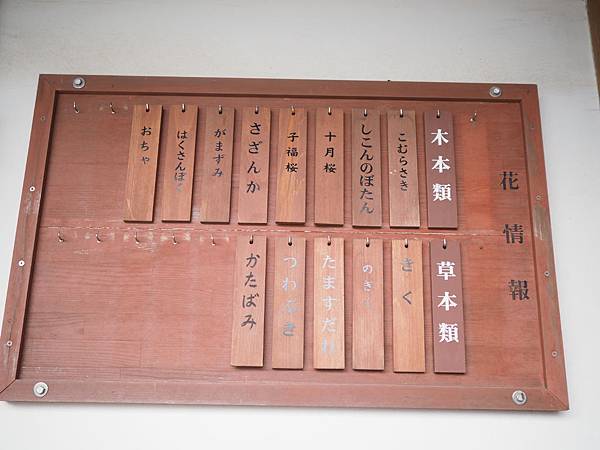 花情報
木本類
こむらさき
しこんのぼたん
十月桜
子福桜
さざんか
がまずみ
はくさんぼく
おちゃ
草本類
きく
のぎく
たますだれ
つわぶき
かたばみ